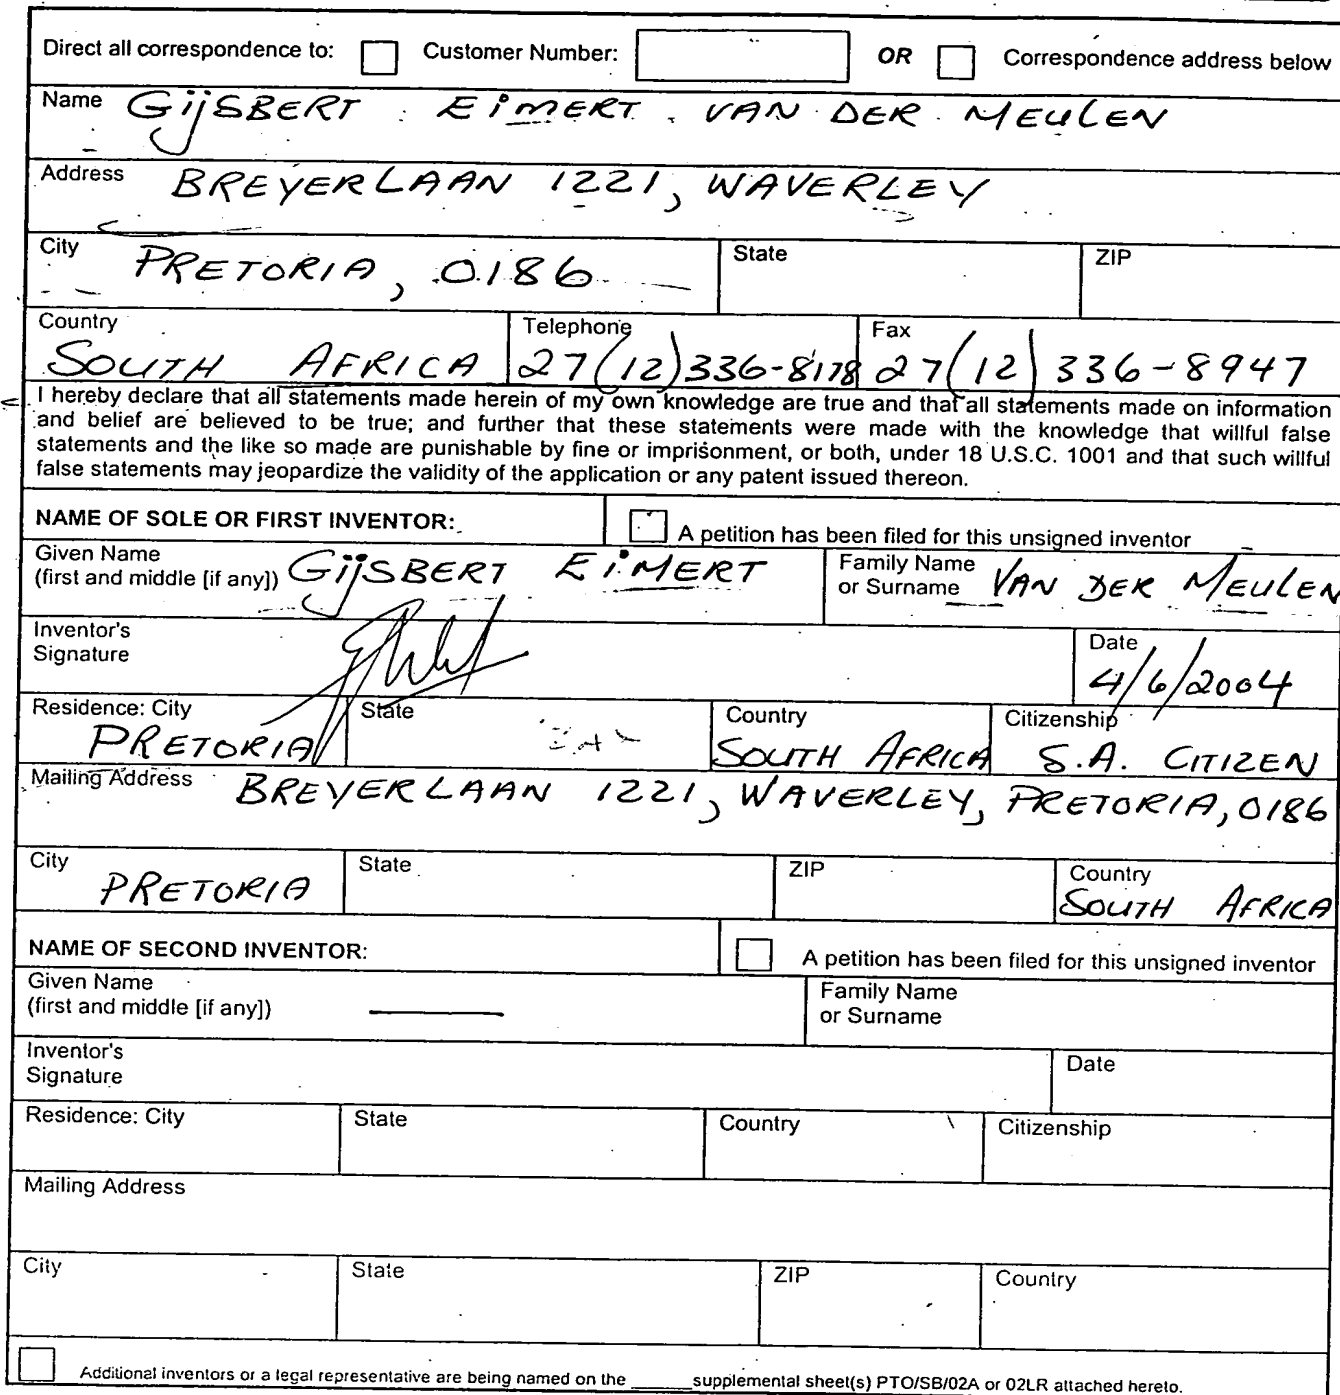 Direct all correspondence to: Customer Number: OR Correspondence address below
Name GijSBERT EiMERT VAN DER MEULEN
Address BREYERLAAN 1221, WAVERLEY
City PRETORIA, 0186 State ZIP
Country SOUTH AFRICA Telephone 27(12)336-8178 Fax 27(12) 336-8947
I hereby declare that all statements made herein of my own knowledge are true and that all statements made on information
and belief are believed to be true; and further that these statements were made with the knowledge that willful false
statements and the like so made are punishable by fine or imprisonment, or both, under 18 U.S.C. 1001 and that such willful
false statements may jeopardize the validity of the application or any patent issued thereon.
NAME OF SOLE OR FIRST INVENTOR: A petition has been filed for this unsigned inventor
Given Name
(first and middle [if any]) GijSBERT EiMERT Family Name
or Surname VAN DER MEULEN
Inventor's
Signature Date
4/6/2004
Residence: City PRETORIA State Country SOUTH AFRICA Citizenship S.A. CITIZEN
Mailing Address BREYERLAAN 1221, WAVERLEY, PRETORIA, 0186
City PRETORIA State ZIP Country SOUTH AFRICA
NAME OF SECOND INVENTOR: A petition has been filed for this unsigned inventor
Given Name
(first and middle [if any]) Family Name
or Surname
Inventor's
Signature Date
Residence: City State Country Citizenship
Mailing Address
City State ZIP Country
Additional inventors or a legal representative are being named on the ______supplemental sheet(s) PTO/SB/02A or 02LR attached hereto.